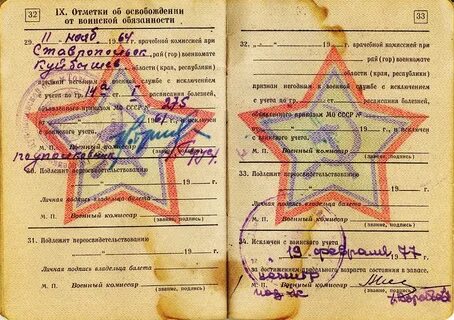 32
IX. Отметки об освобождении
от воинской обязанности
29. 11 нояб 1964 г. врачебной комиссией при
Ставропольск (гор) военкомате
Куйбышев. области (края, республики)
признан негодным к военной службе с исключением
с учета по гр. 14а расписания болезней,
объявленного приказом МО СССР № 275
19 61 г. и исключен
с воинского учета.
М. П. подполковник
30. Подлежит переосвидетельствованию
Личная подпись владельца билета
М. П. Военный комиссар
(звание, подпись)
31. Подлежит переосвидетельствованию
Личная подпись владельца билета
М. П. Военный комиссар
(звание, подпись)
33
32. 19 г. врачебной комиссией при
рай (гор) военкомате
области (края, республики)
признан негодным к военной службе с исключением
с учета по гр. расписания болезней,
объявленного приказом МО СССР №
19 г. и исключен
с воинского учета.
М. П. Военный комиссар
(звание, подпись)
33. Подлежит переосвидетельствованию
Личная подпись владельца билета
М. П. Военный комиссар
(звание, подпись)
34. Исключен с воинского учета
19 февраля 77
за достижением предельного возраста состояния в запасе.
М. П. майор
(звание, подпись)